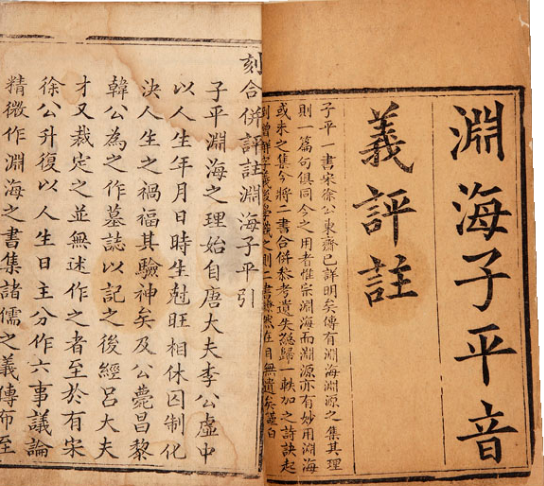 淵海子平音
義評註
子平一書宋徐公東齋已詳明矣傳有淵海淵源之集其理
則一篇句俱同今之用者惟宗淵海而淵源亦有妙用淵海
或未之集今將二書合併叅考遺失隱歸一帙加之詩訣起
刻合併評註淵海子平引
子平淵海之理始自唐大夫李公虛中
以人生年月日時生尅旺相休囚制化
決人生之禍福其驗神矣及公薨昌黎
韓公為之作墓誌以記之後經呂大夫
才又裁定之並無述作之者至於有宋
徐公升復以人生日主分作六事議論
精微作淵海之書集諸儒之義傳布至